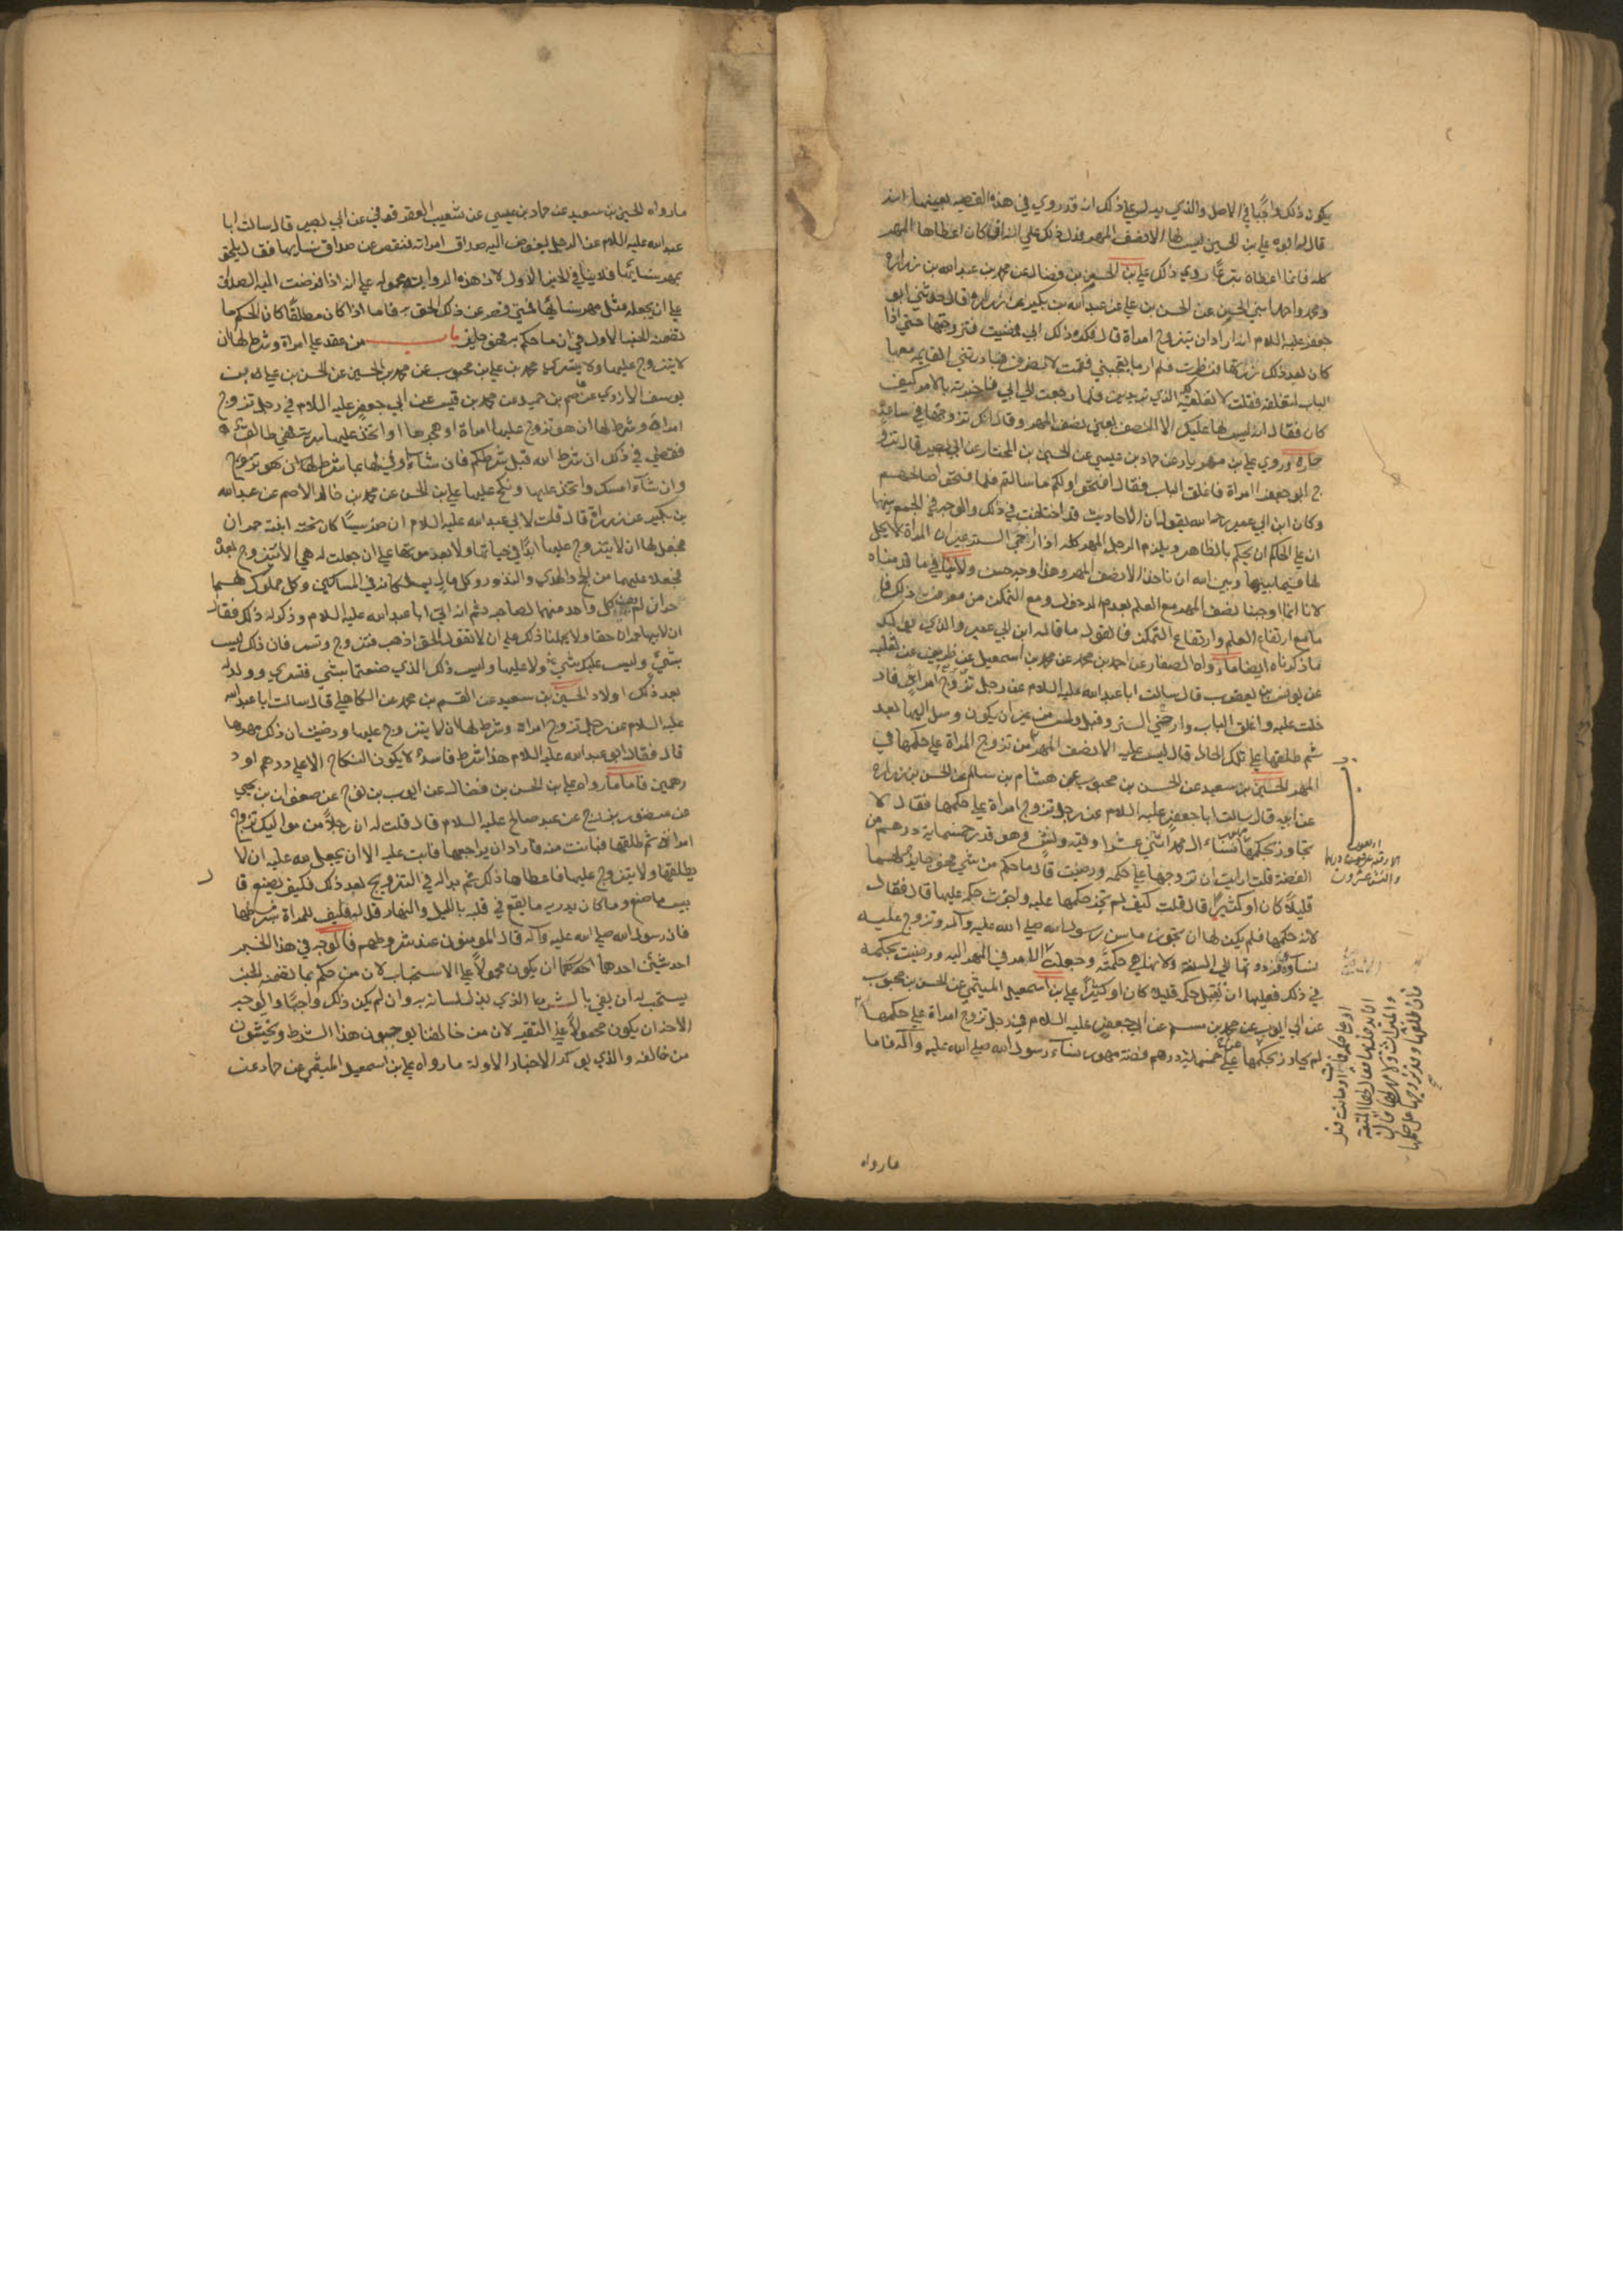 يكون ذلك واجبًا في الاصل والذي يدل على ذلك انه قد روي في هذه القصه بعينها انه
قال له ابوه علي بن الحسين ليس لها الا نصف المهر فدل ذلك على انه ان كان اعطاها المهر
كله فانما اعطاه تبرعًا روي ذلك علي بن الحسن بن فضال عن محمد بن عبدالله بن زراره
ومحمد واحمد ابني الحسن عن الحسن بن علي عن عبدالله بن بكير عن زراره قال حدثني ابو
جعفر عليه السلام انه اراد ان يتزوج امراة قال فكره ذلك ابي فمضيت فتزوجتها حتى اذا
كان بعد ذلك زرتها فنظرت فلم ار ما يعجبني فقمت لانصرف فبادرتني القايمه معها
الباب لتغلقه فقلت لا تغلقيه لك الذي تريدين فلما رجعت الى ابي فاخبرته بالامر كيف
كان فقال انه ليس لها عليك الا النصف يعني نصف المهر وقال انك تزوجتها في ساعة
حارة وروي علي بن مهزيار عن حماد بن عيسى عن الحسين بن المختار عن ابي بصير قال تزو
ج ابو جعفر امراة فاغلق الباب فقال افتحوا ولكم ما سالتم فلما فتحوا صالحهم
وكان ابن ابي عمير رحمه الله يقول ان الاحاديث قد اختلفت في ذلك والوجه في الجمع بينها
ان على الحاكم ان يحكم بالظاهر ويلزم الرجل المهر كله اذا ارخى الستر غير ان المراة لا يحل
لها فيما بينها وبين الله ان تاخذ الا نصف المهر وهذا وجه حسن ولا ينافي ما قدمناه
لانا انما اوجبنا نصف المهر مع العلم بعدم الدخول ومع التمكن من معرفة ذلك فا
ما مع ارتفاع العلم وارتفاع التمكن فالقول ما قاله ابن ابي عمير والذي يؤكد
ما ذكرناه ايضا ما رواه الصفار عن احمد بن محمد عن محمد بن اسمعيل عن ظريف عن ثعلبه
عن يونس بن يعقوب قال سالت ابا عبدالله عليه السلام عن رجل تزوج امراة فاد
خلت عليه واغلق الباب وارخى الستر وقبل ولمس من غير ان يكون وصل اليها بعد
ثم طلقها على تلك الحال قال ليس عليه الا نصف المهر من تزوج المراة على حكمها في
المهر الحسين بن سعيد عن الحسن بن محبوب عن هشام بن سالم عن الحسن بن زراره
عن ابيه قال سالت ابا جعفر عليه السلام عن رجل تزوج امراة على حكمها فقال لا
تجاوز بحكمها نساء ال محمد اثنتي عشرا وقيه ونش وهو قدر خمسمايه درهم من
الفضة قلت ارايت ان تزوجها على حكمه ورضيت قال ما حكم من شي فهو جايز عليها
قليلًا كان او كثيرًا قال قلت كيف لم تجز حكمها عليه واجزت حكمه عليها قال فقال
لانه حكمها فلم يكن لها ان تجوز ما سن رسول الله صلى الله عليه وآله وتزوج عليه
نساءه فرددتها الى السنة ولانها هي حكمته وجعلت الامر في المهر اليه ورضيت بحكمه
في ذلك فعليها ان تقبل حكمه قليلا كان او كثيرًا علي بن اسمعيل الميثمي عن الحسن بن محبوب
عن ابي ايوب عن محمد بن مسلم عن ابي جعفر عليه السلام في رجل تزوج امراة على حكمها
لم يجاوز بحكمها على خمسمائة درهم فضة مهور نساء رسول الله صلى الله عليه وآله فاما
اربعون
والنش عشرون
او ماتت قبل
ان يدخل بها فقال لها المتعة
والميراث ولا مهر لها قال
فان طلقها وقد تزوجها على حكمها
ما رواه
ما رواه الحسين بن سعيد عن حماد بن عيسى عن شعيب العقرقوفي عن ابي بصير قال سالت ابا
عبد الله عليه السلام عن الرجل يفوض اليه صداق امراته فنقص عن صداق نسايها فقال يلحق
بمهر نسايها فلا ينافي الخبر الاول لان هذه الرواية محموله على انه اذا فوضت اليه الصداق
على ان يجعله مثل مهر نسايها فمتى قصر عن ذلك الحق به فاما اذا كان مطلقًا كان الحكم ما
تضمنه الخبر الاول من ان ما حكم به فهو جايز باب من عقد على امراة وشرط لها ان
لا يتزوج عليها ولا يتسرى محمد بن علي بن محبوب عن محمد بن الحسين عن الحسن بن علي بن
يوسف الازدي عن عاصم بن حميد عن محمد بن قيس عن ابي جعفر عليه السلام في رجل تزوج
امراة وشرط لها ان هو تزوج عليها امراة او هجرها او اتخذ عليها سرية فهي طالق
فقضى في ذلك ان شرط الله قبل شرطكم فان شاء وفى لها بما شرط لها ان هو تزوج
وان شاء امسك واتخذ عليها ونكح عليها علي بن الحسن عن محمد بن خالد الاصم عن عبدالله
بن بكير عن زرارة قال قلت لابي عبد الله عليه السلام ان ضريسًا كان تحته ابنة حمران
فجعل لها ان لا يتزوج عليها ابدًا في حياتها ولا بعد موتها على ان جعلت له هي الا تتزوج بعده
فجعلا عليهما من الحج والهدي والنذور وكل مال يملكانه في المساكين وكل مملوك لهما
حر ان لم يف كل واحد منهما لصاحبه ثم انه اتى ابا عبد الله عليه السلام وذكر له ذلك فقال
ان لابيها حمران حقا ولا يحملنا ذلك على ان لا نقول الحق اذهب فتزوج وتسر فان ذلك ليس
بشيء وليس عليك شيء ولا عليها وليس ذلك الذي صنعتما بشي فتسرى وولد له
بعد ذلك اولاد الحسين بن سعيد عن القسم بن محمد عن الكاهلي قال سالت ابا عبد الله
عليه السلام عن رجل تزوج امراة وشرط لها ان لا يتزوج عليها ورضيت ان ذلك مهرها
قال فقال ابو عبد الله عليه السلام هذا شرط فاسد لا يكون النكاح الا على درهم او د
رهمين فاما ما رواه علي بن الحسن بن فضال عن ايوب بن نوح عن صفوان بن يحيى
عن منصور بزرج عن عبد صالح عليه السلام قال قلت له ان رجلًا من مواليك تزوج
امراة ثم طلقها فبانت منه فاراد ان يراجعها فابت عليه الا ان يجعل لله عليه ان لا
يطلقها ولا يتزوج عليها فاعطاها ذلك ثم بدا له في التزويج بعد ذلك فكيف يصنع قا
بيس ما صنع وما كان يدريه ما يقع في قلبه بالليل والنهار قل له فليف للمراة شرطها
فان رسول الله صلى الله عليه وآله قال المومنون عند شروطهم فالوجه في هذا الخبر
احد شيئين احدهما ان يكون محمولًا على الاستحباب لان من حكم بما تضمنه الخبر
يستحب له ان يفي بالشرط الذي بذل لسانه به وان لم يكن ذلك واجبًا والوجه
الاخر ان يكون محمولًا على التقيه لان من خالفنا يوجبون هذا الشرط ويحنثون
من خالفه والذي يؤكد الاخبار الاولة ما رواه علي بن اسمعيل الميثمي عن حماد عن